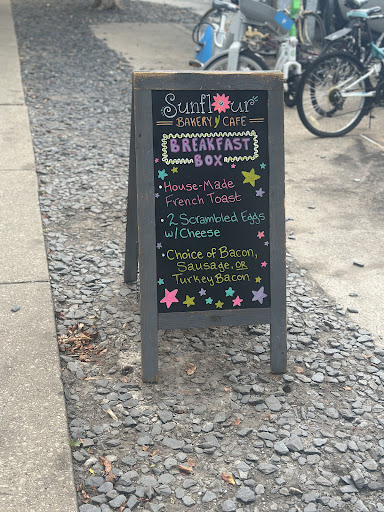 Sunflour
BAKERY CAFE
BREAKFAST
BOX
• House-Made
French Toast
• 2 Scrambled Eggs
w/Cheese
• Choice of Bacon,
Sausage, OR
Turkey Bacon